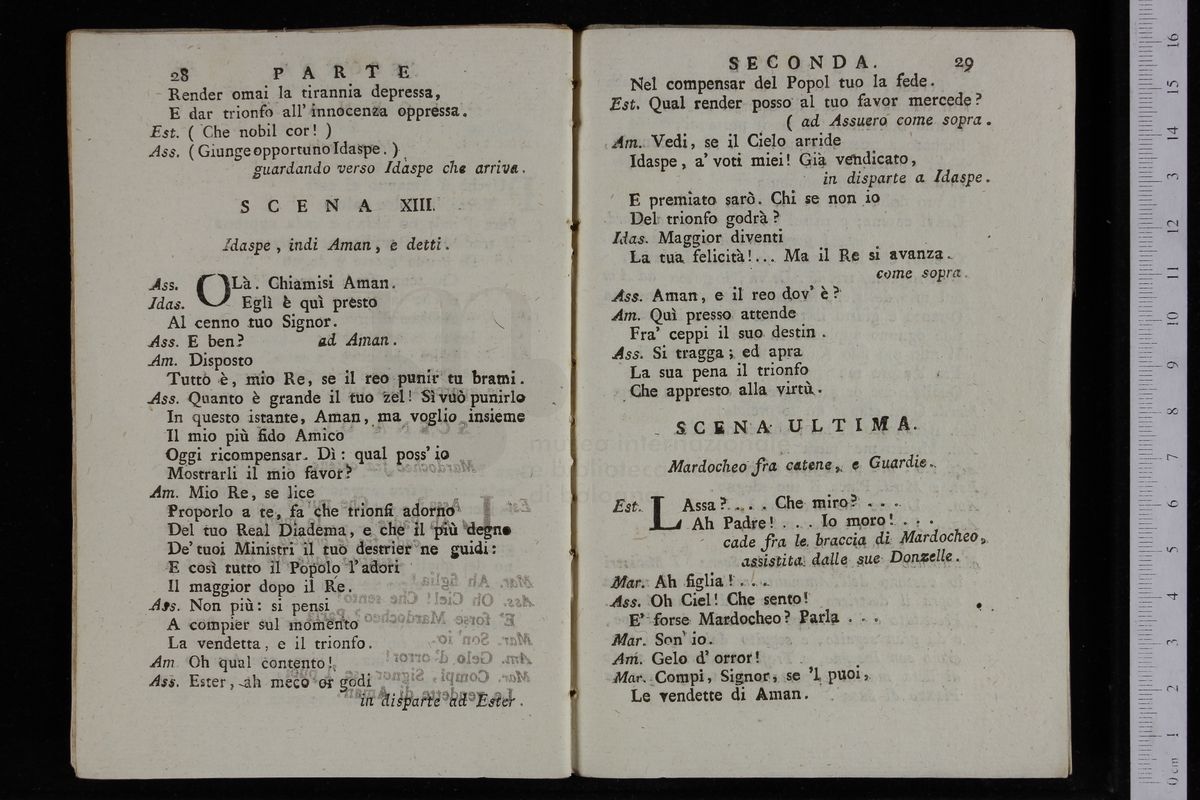 28 PARTE
Render omai la tirannia depressa,
E dar trionfo all' innocenza oppressa.
Est. ( Che nobil cor! )
Ass. ( Giunge opportuno Idaspe. )
guardando verso Idaspe che arriva.
SCENA XIII.
Idaspe, indi Aman, e detti.
Ass. OLà. Chiamisi Aman.
Idas. Egli è quì presto
Al cenno tuo Signor.
Ass. E ben? ad Aman.
Am. Disposto
Tutto è, mio Re, se il reo punir tu brami.
Ass. Quanto è grande il tuo zel! Sì vuò punirlo
In questo istante, Aman, ma voglio insieme
Il mio più fido Amico
Oggi ricompensar. Dì: qual poss' io
Mostrarli il mio favor?
Am. Mio Re, se lice
Proporlo a te, fa che trionfi adorno
Del tuo Real Diadema, e che il più degno
De' tuoi Ministri il tuo destrier ne guidi:
E così tutto il Popolo l'adori
Il maggior dopo il Re.
Ass. Non più: si pensi
A compier sul momento
La vendetta, e il trionfo.
Am Oh qual contento!
Ass. Ester, ah meco or godi
in disparte ad Ester.
SECONDA. 29
Nel compensar del Popol tuo la fede.
Est. Qual render posso al tuo favor mercede?
( ad Assuero come sopra.
Am. Vedi, se il Cielo arride
Idaspe, a' voti miei! Già vendicato,
in disparte a Idaspe.
E premiato sarò. Chi se non io
Del trionfo godrà?
Idas. Maggior diventi
La tua felicità!... Ma il Re si avanza.
come sopra.
Ass. Aman, e il reo dov' è?
Am. Quì presso attende
Fra' ceppi il suo destin.
Ass. Si tragga; ed apra
La sua pena il trionfo
Che appresto alla virtù.
SCENA ULTIMA.
Mardocheo fra catene, e Guardie.
Est. LAssa? . . . . Che miro? . . .
Ah Padre! . . . Io moro! . . .
cade fra le braccia di Mardocheo,
assistita dalle sue Donzelle.
Mar. Ah figlia! . . .
Ass. Oh Ciel! Che sento!
E' forse Mardocheo? Parla . . .
Mar. Son' io.
Am. Gelo d' orror!
Mar. Compi, Signor, se 'l puoi,
Le vendette di Aman.